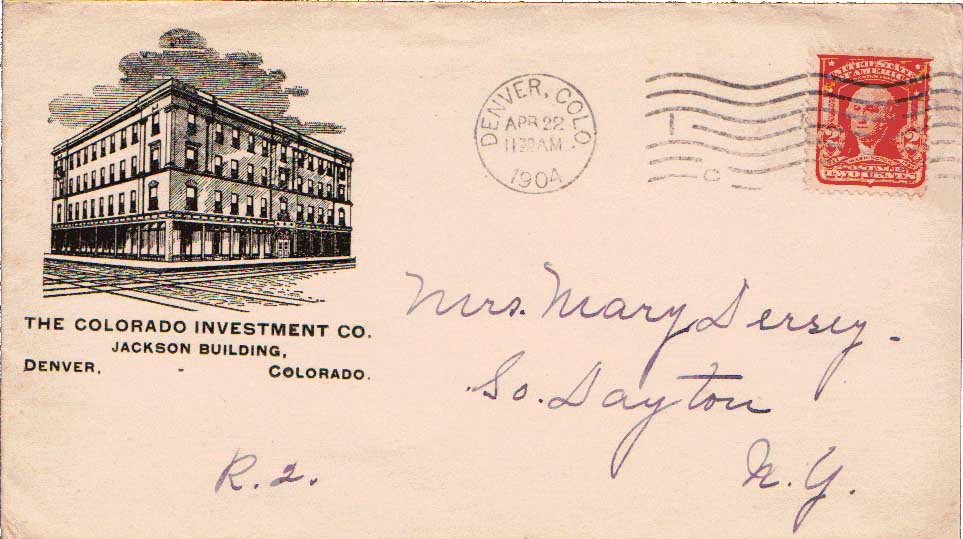 THE COLORADO INVESTMENT CO.
JACKSON BUILDING,
DENVER, - COLORADO.
DENVER, COLO
APR 22
1130AM
1904
UNITED STATES
OF AMERICA
2 2
POSTAGE
TWO CENTS
Mrs. Mary Dersey.
So. Dayton
N.Y.
R.2.